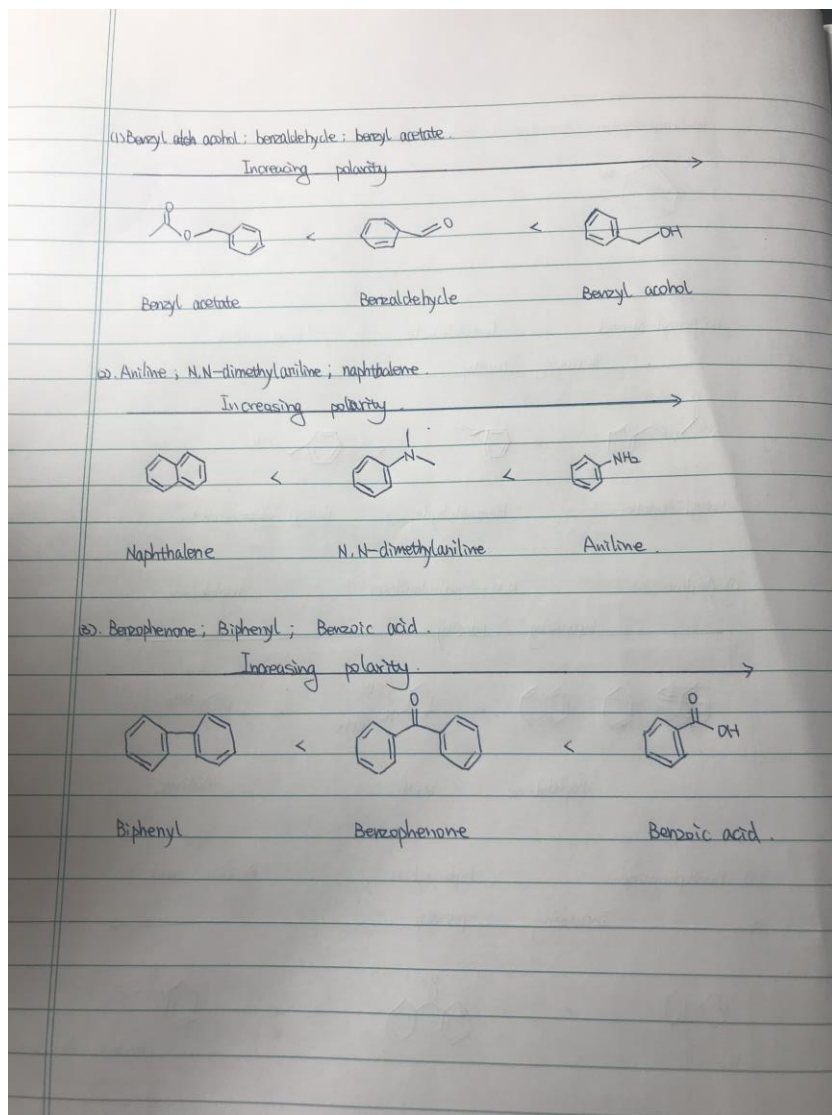 (1) Benzyl alch acohol ; benzaldehycle ; benzyl acetate .
Increacing polarity
O O < O < OH
Benzyl acetate Benzaldehycle Benzyl acohol
(2). Aniline ; N,N-dimethylaniline ; naphthalene .
Increasing polarity .
< N < NH2
Naphthalene N,N-dimethylaniline Aniline .
(3). Benzophenone ; Biphenyl ; Benzoic acid .
Increasing polarity .
< O < O OH
Biphenyl Benzophenone Benzoic acid .